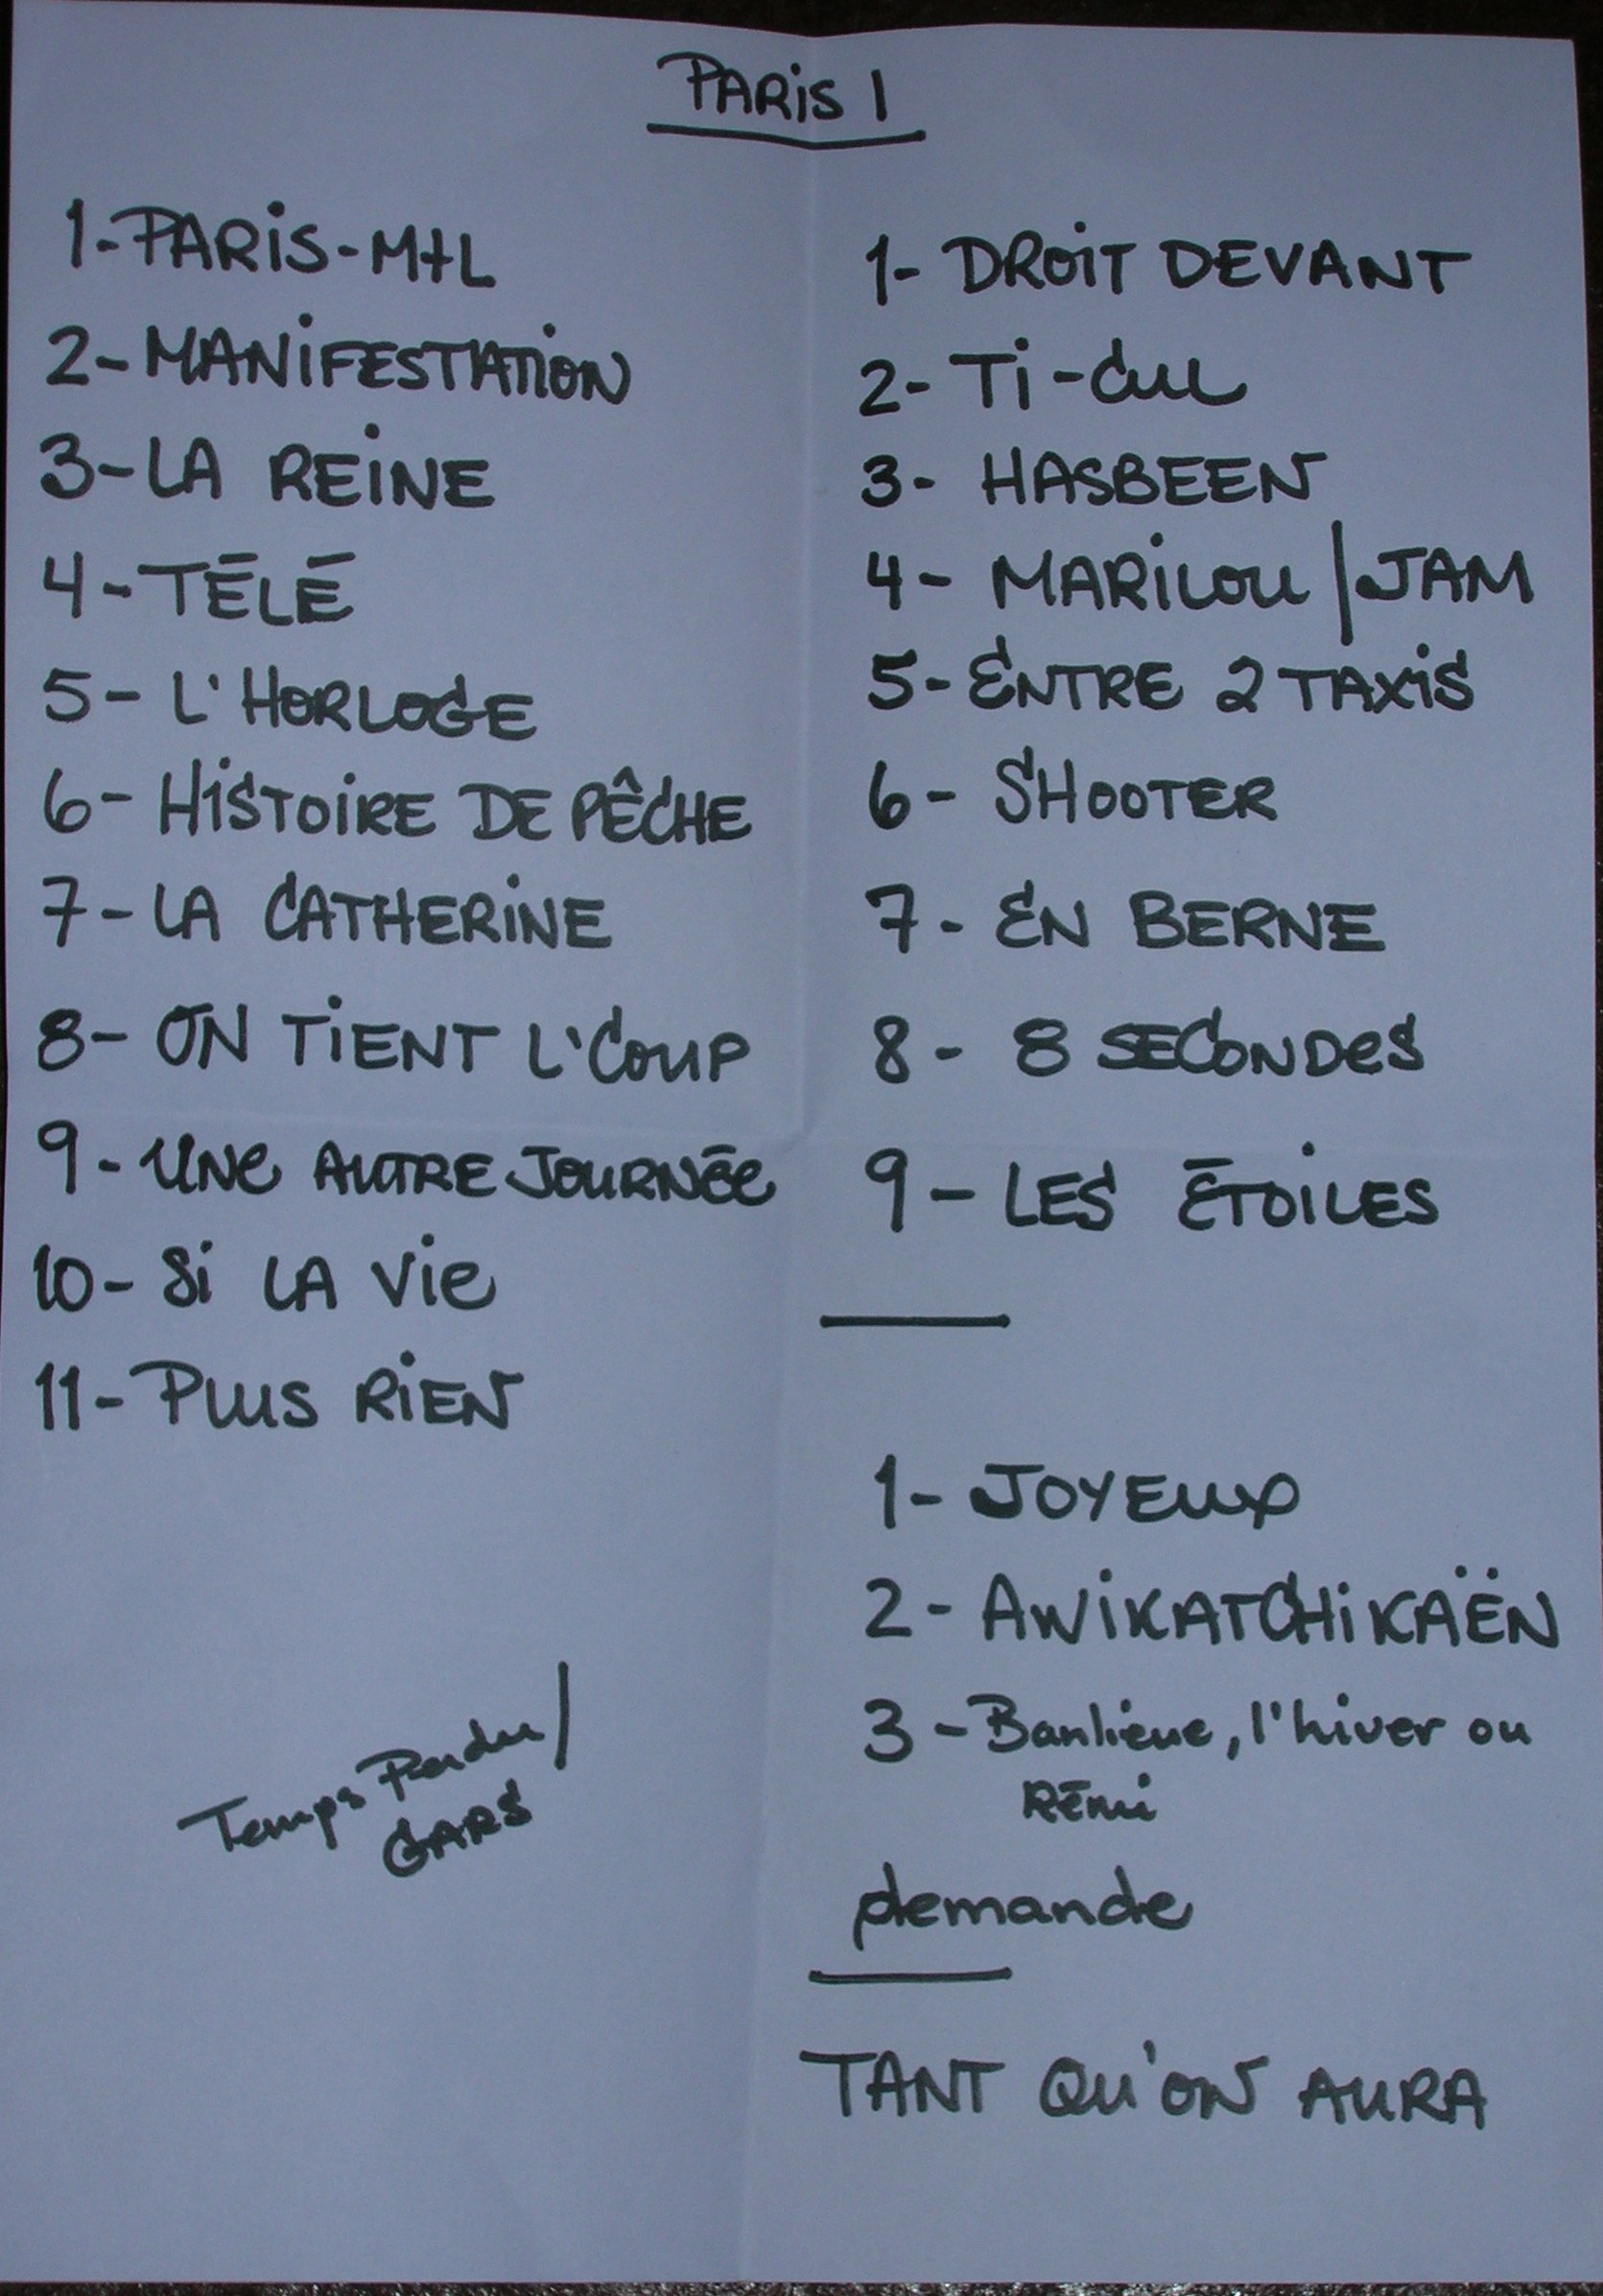 PARIS 1
1-PARIS-MTL
2-MANIFESTATION
3-LA REINE
4-TÉLÉ
5-L'HORLOGE
6-HISTOIRE DE PÊCHE
7-LA CATHERINE
8-ON TIENT L'COUP
9-UNE AUTRE JOURNÉE
10-Si LA Vie
11-PLUS RIEN
Temps Perdu/
GARS
1-DROIT DEVANT
2-Ti-CUL
3-HASBEEN
4-MARILOU/JAM
5-ENTRE 2 TAXIS
6-SHOOTER
7-EN BERNE
8-8 SECONDES
9-LES ÉTOILES
1-JOYEUX
2-AWIKATCHIKAËN
3-Banlieue, l'hiver ou
Rémi
demande
TANT QU'ON AURA